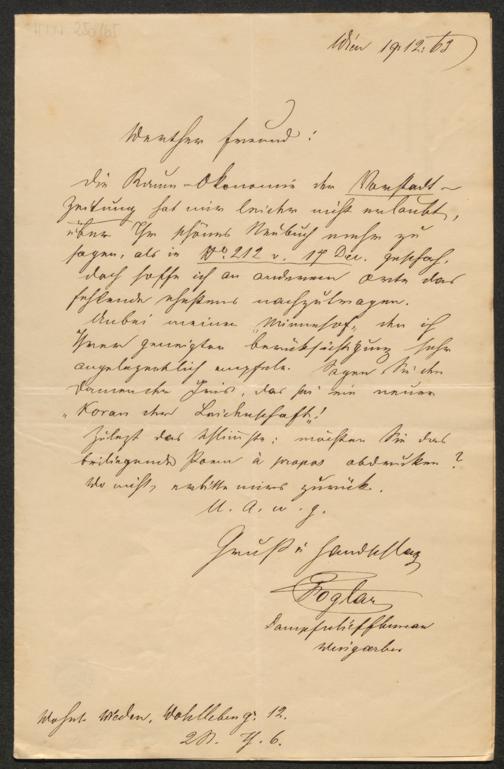 Wien 19.12.63
Werther Freund!
Die Raum-Ökonomie der Vorstadt-
Zeitung hat mir leider nicht erlaubt,
über Ihr schönes Neubuch mehr zu
sagen, als in No. 212 v. 17 Dec. geschah,
doch hoffe ich an anderem Orte das
fehlende ehestens nachzutragen.
Anbei meinen „Minnehof“, den ich
Ihrer geneigten Berücksichtigung sehr
angelegentlich empfehle. Sagen Sie den
Damen der Iris, das sei ein neuer
„Koran der Leidenschaft“!
Zuletzt das Schlimmste: möchten Sie das
beiliegende Poem à propos abdrucken?
Wo nicht, erbitte mirs zurück.
U. A. w. g.
Gruß u Handschlag
Foglar
Wohnt Wieden, Wohllebeng. 12.
2 St. T. 6.